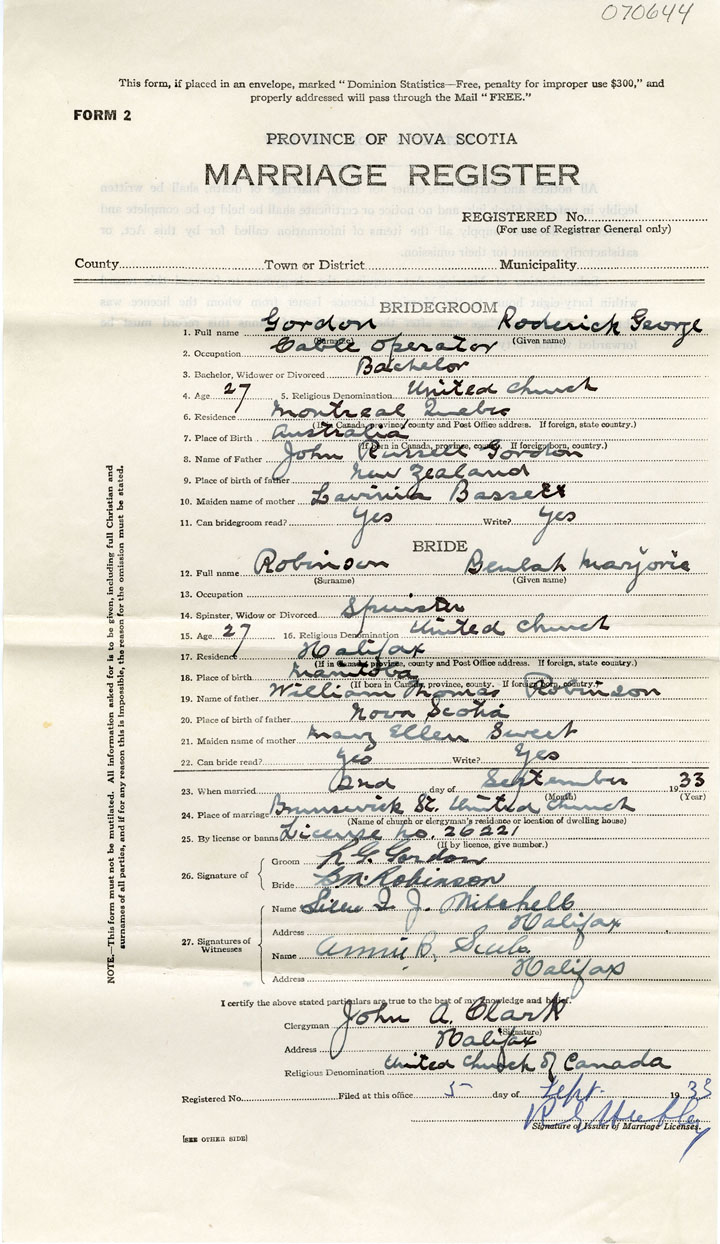 070644
This form, if placed in an envelope, marked “Dominion Statistics—Free, penalty for improper use $300,” and
properly addressed will pass through the Mail “FREE.”
FORM 2
PROVINCE OF NOVA SCOTIA
MARRIAGE REGISTER
REGISTERED No.
(For use of Registrar General only)
County Town or District Municipality
BRIDEGROOM
1. Full name Gordon Roderick George
(Surname) (Given name)
2. Occupation Cable Operator
3. Bachelor, Widower or Divorced Bachelor
4. Age 27 5. Religious Denomination United Church
6. Residence Montreal Quebec
(If in Canada, province, county and Post Office address. If foreign, state country.)
7. Place of Birth Australia
(If born in Canada, province, county. If foreign born, country.)
8. Name of Father John Russell Gordon
9. Place of birth of father New Zealand
10. Maiden name of mother Lavinia Bassett
11. Can bridegroom read? Yes Write? Yes
BRIDE
12. Full name Robinson Beulah Marjorie
(Surname) (Given name)
13. Occupation
14. Spinster, Widow or Divorced Spinster
15. Age 27 16. Religious Denomination United Church
17. Residence Halifax
(If in Canada, province, county and Post Office address. If foreign, state country.)
18. Place of birth Manitoba
(If born in Canada, province, county. If foreign born, country.)
19. Name of father William Thomas Robinson
20. Place of birth of father Nova Scotia
21. Maiden name of mother Mary Ellen Sweet
22. Can bride read? Yes Write? Yes
23. When married 2nd day of September 1933
(Month) (Year)
24. Place of marriage Brunswick St. United Church
(Name of church or clergyman's residence or location of dwelling house)
25. By license or banns License no. 26221
(If by licence, give number.)
26. Signature of
Groom R. G. Gordon
Bride B. M. Robinson
27. Signatures of Witnesses
Name J. Mitchell
Address Halifax
Name Annie B.
Address Halifax
I certify the above stated particulars are true to the best of my knowledge and belief.
Clergyman John A. Clark
(Signature)
Address Halifax
Religious Denomination United Church of Canada
Registered No. Filed at this office 5 day of Sept. 1933
Signature of Issuer of Marriage Licenses.
[SEE OTHER SIDE]
NOTE.—This form must not be mutilated. All information asked for is to be given, including full Christian and
surnames of all parties, and if for any reason this is impossible, the reason for the omission must be stated.